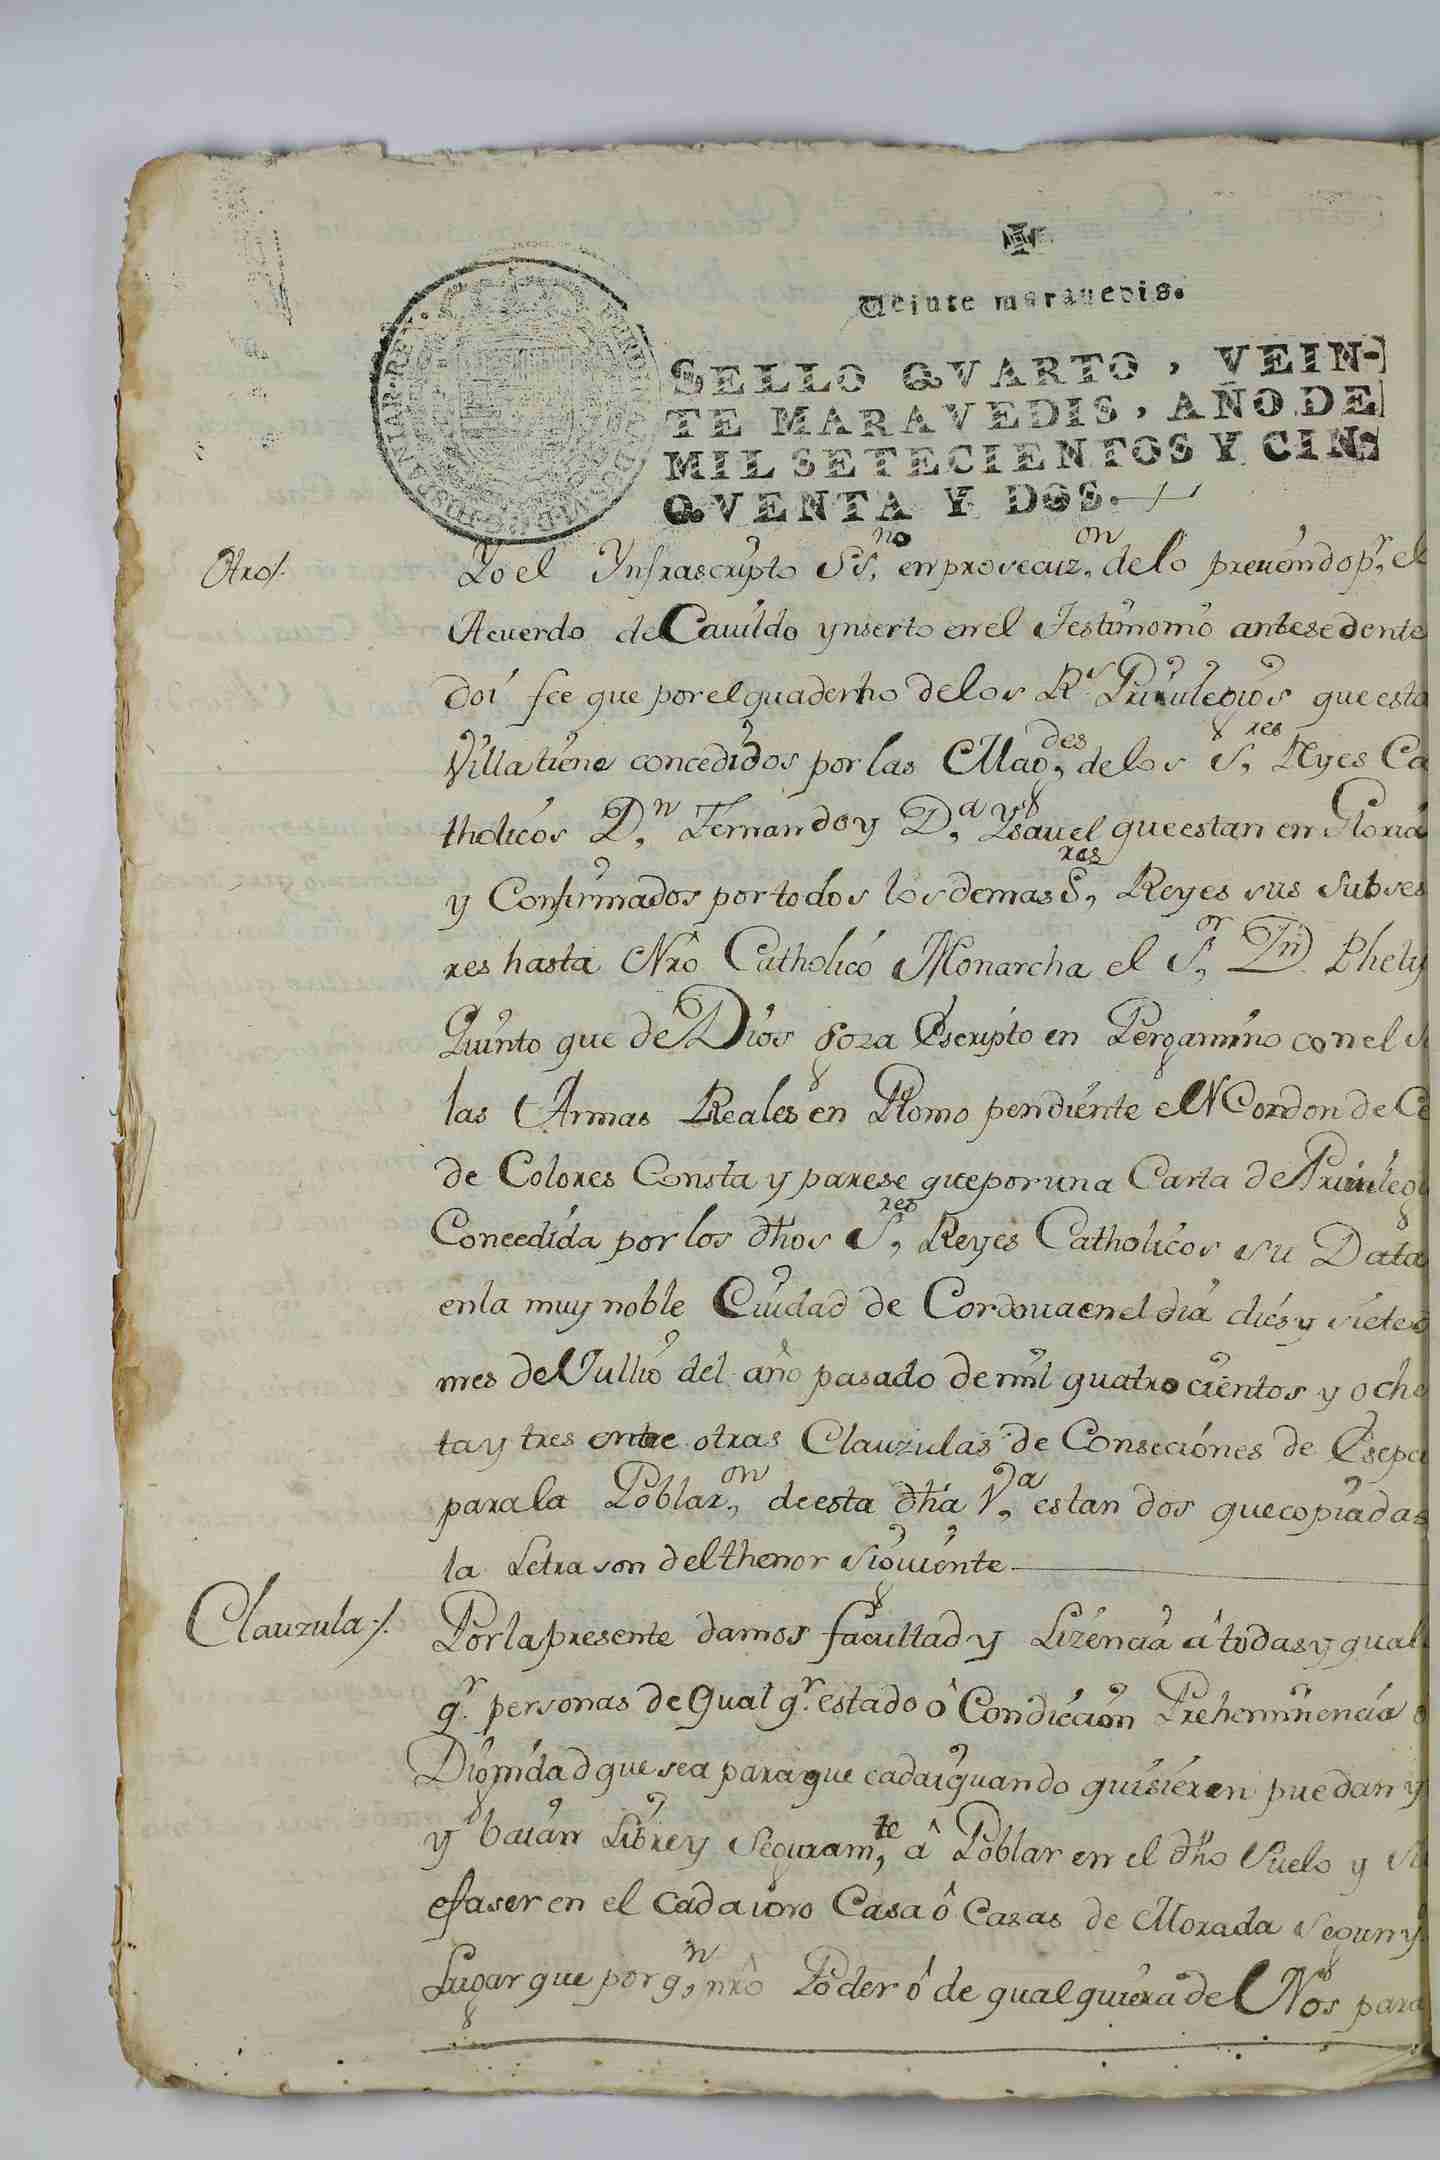 Veinte maravedis.
SELLO QVARTO, VEIN-
TE MARAVEDIS, AÑO DE
MIL SETECIENTOS Y CIN-
QVENTA Y DOS.
Otro/.
Yo el Ynfrascripto SS.no en prosecuz.on de lo preuenido pr. el
Acuerdo de Cauildo ynserto en el Testimonio antesedente
doi fee que por el quaderno de los Rs. Priuilegios que esta
Villa tiene concedidos por las Mag.des de los S.res Reyes Ca
tholicos D.n Fernando y D.a Ysauel que estan en Gloria
y Confirmados por todos los demas S.res Reyes sus Subses
res hasta Nrô Catholico Monarcha el S.or Dn. Phelip
Quinto que de Dios goza Escripto en Pergamino con el
las Armas Reales en Plomo pendiente en Cordon de
de Colores Consta y parese que por una Carta de Priuilegi
Concedida por los dhos S.res Reyes Catholicos su Data
en la muy noble Ciudad de Cordoua en el dia dies y siete
mes de Jullio del año pasado de mil quatrocientos y oche
ta y tres entre otras Clauzulas de Conseciónes de
para la Poblaz.on de esta dha V.a estan dos que copiadas
la Letra son del thenor Siguiente
Clauzula./.
Por la presente damos facultad y Lizencia â todas y qual
qr. personas de qual qr. estado ô Condición Preheminencia
Dignidad que sea para que cada i quando quisieren puedan y
y baian Libre y Seguram.te â Poblar en el dho Suelo y
efaser en el cada uno Casa ô Casas de Morada segun y
Lugar que por q.n nrô Poder ô de qualquiera de Nos para